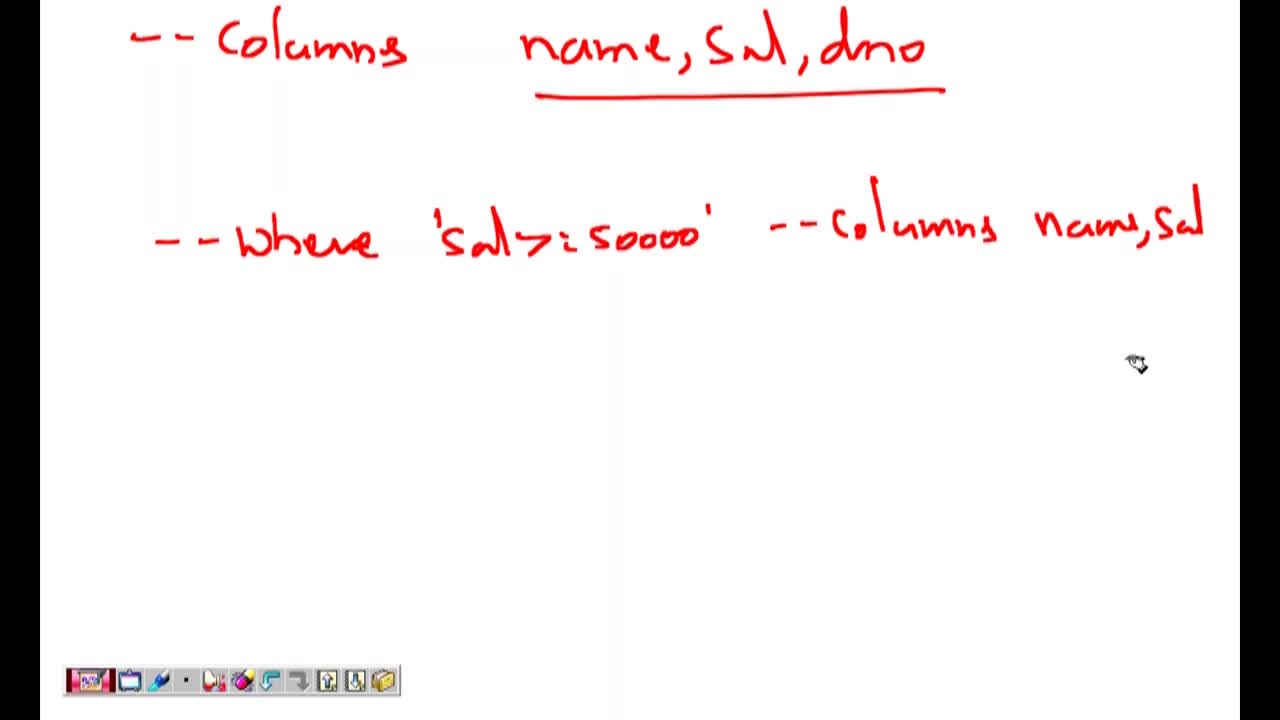 -- Columns name, sal, dno
-- where 'sal>=50000' -- columns name, sal